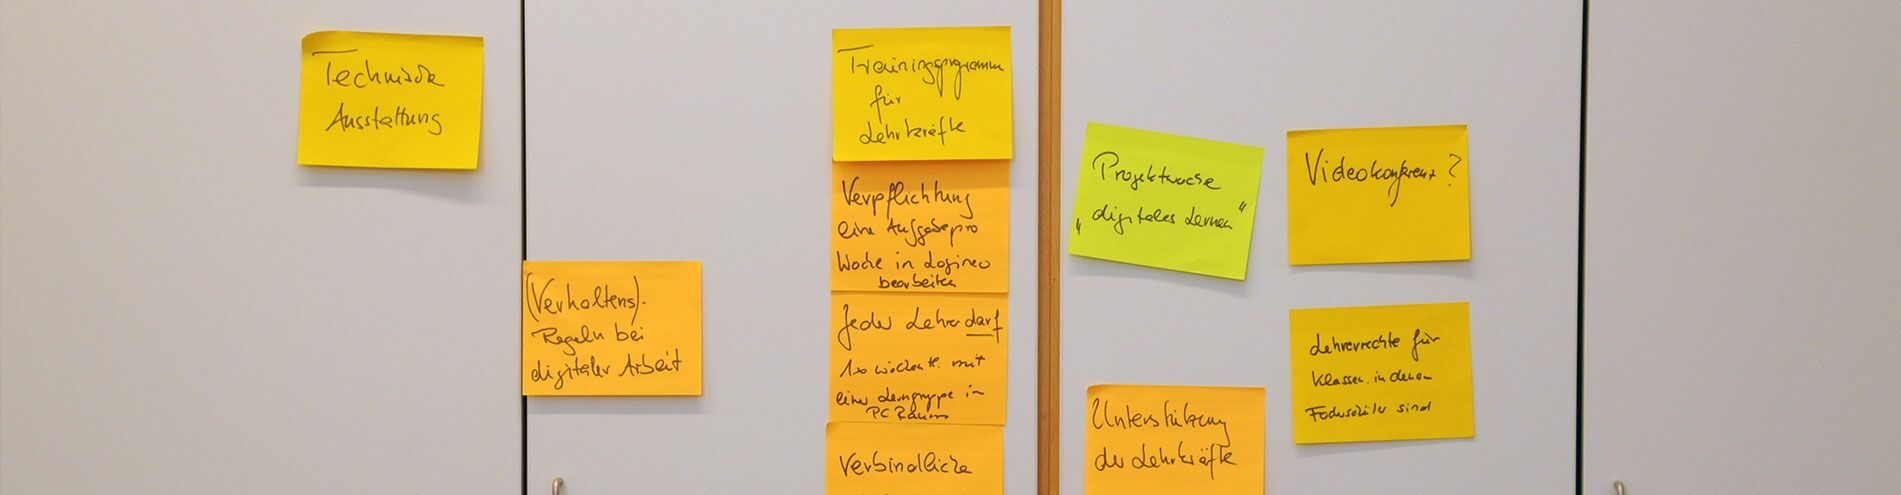 Technische
Ausstattung
(Verhaltens)-
Regeln bei
digitaler Arbeit
Trainingsprogramm
für
Lehrkräfte
Verpflichtung
eine Aufgabe pro
Woche in Logineo
bearbeiten
Jeder Lehrer darf
1x wöchentl. mit
einer Lerngruppe in
PC Raum
Verbindliche
Projektwoche
„digitales Lernen“
Unterstützung
der Lehrkräfte
Videokonferenz?
Lehrerrechte für
Klassen in denen
sind